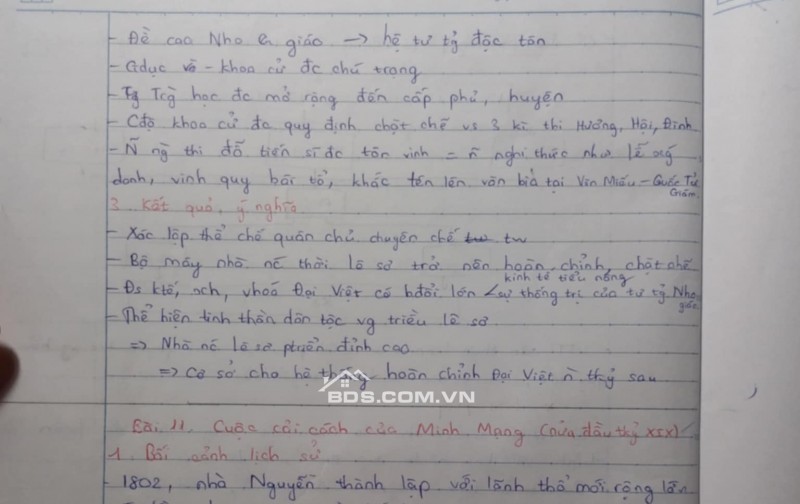 - Đề cao Nho giáo → hệ tư tg̉ độc tôn
- Gdục - khoa cử đc chú trọng
- Trg̀ học đc mở rộng đến cấp phủ, huyện
- Cđộ khoa cử đc quy định chặt chẽ vs 3 kì thi Hương, Hội, Đình
- Ñ ng thi đỗ tiến sĩ đc tôn vinh = ñ nghi thức như lễ xg
danh, vinh quy bái tổ, khắc tên lên văn bia tại Văn Miếu - Quốc Tử
Giám
3. Kết quả, ý nghĩa
- Xác lập thể chế quân chủ chuyên chế tw
- Bộ máy nhà nc thời lê sơ trở nên hoàn chỉnh, chặt chẽ
kinh tế tiểu nông
- Đs ktế, xh, vhoá Đại Việt có bđổi lớn < sự thống trị của tư tg̉ Nho
giáo
- Thể hiện tinh thần dân tộc vg triều lê sơ
⇒ Nhà nc lê sơ ptriển đỉnh cao
⇒ Cơ sở cho hệ thống hoàn chỉnh Đại Việt ñ tkỷ sau
BDS.COM.VN
Bài 11. Cuộc cải cách của Minh Mạng (nửa đầu tkỷ XIX)
1. Bối cảnh lịch sử
- 1802, nhà Nguyễn thành lập với lãnh thổ mới rộng lớn